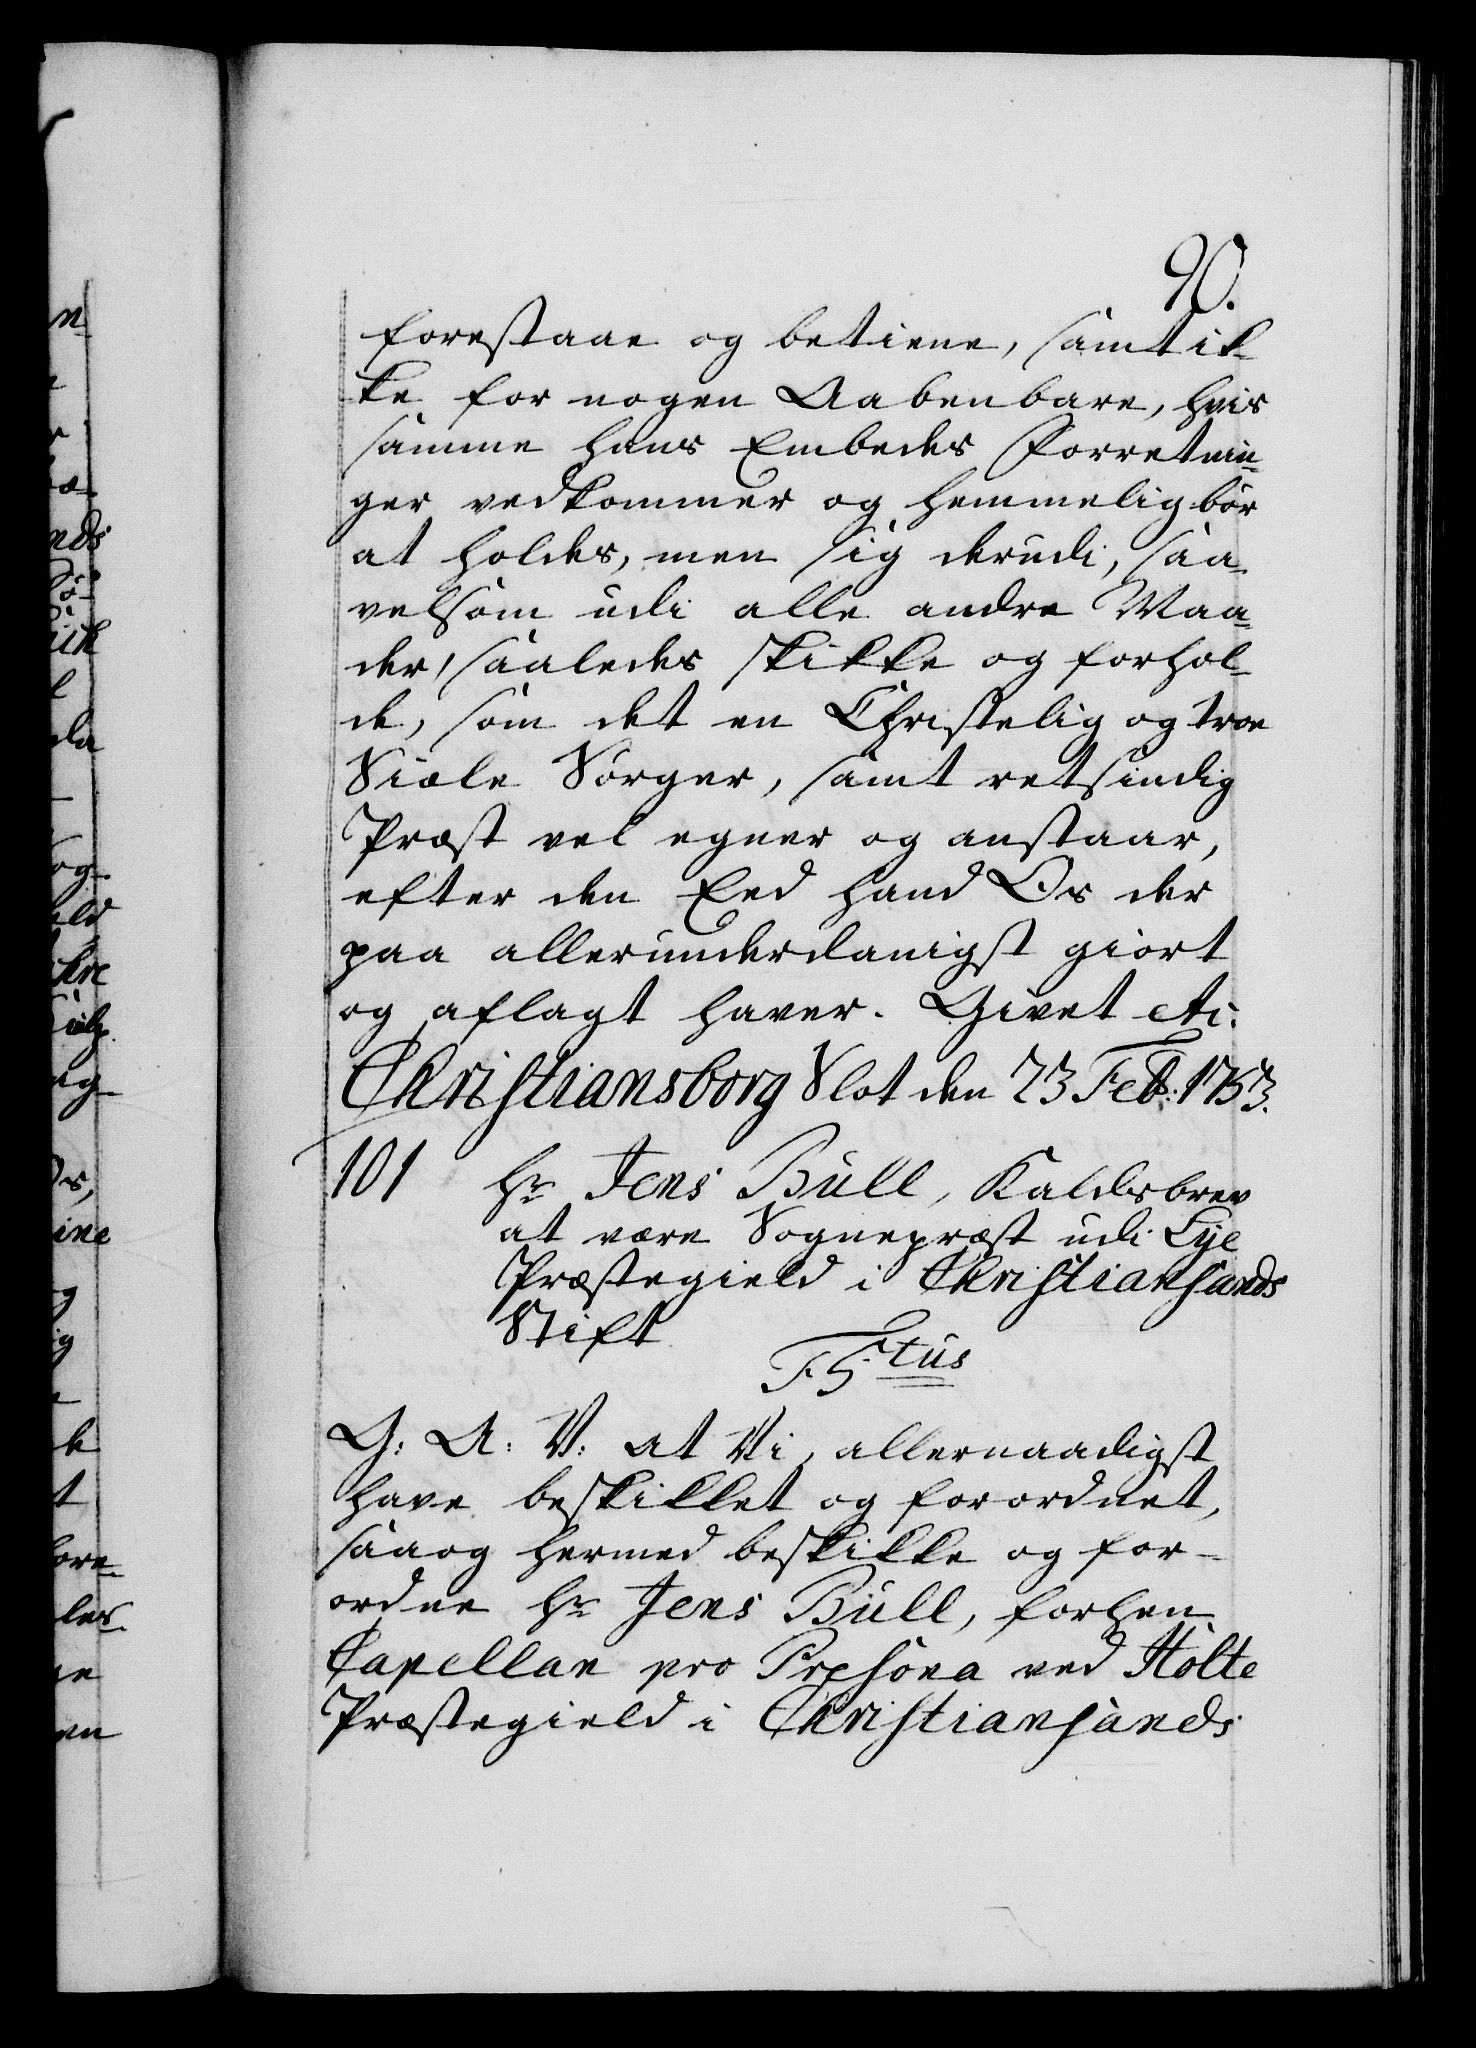 90.
forestaae og betiene, samt ik-
ke for nogen Aabenbare, hvis
samme hans Embedes Forretnin-
ger vedkommer og hemmelig bör
at holdes, men sig derudi, saa-
velsom udi alle andre Maa-
der, saaledes skikke og forhol-
de, som det en Christelig og troe
Siæle Sörger, samt retsindig
Præst vel egner og anstaar,
efter den Eed hand Os der
paa allerunderdanigst giort
og aflagt haver. Givet etc.
Christiansborg Slot den 23 Feb: 1753.
101 Hr. Jens Bull, Kaldsbrev
at være Sognepræst udi Lye
Præstegield i Christiansands
Stift
F5tus
G: A: V: at Vi, allernaadigst
have beskikket og forordnet,
saa og hermed beskikke og for-
ordne Hr. Jens Bull, forhen
Capellan pro Persona ved Holte
Præstegield i Christiansands